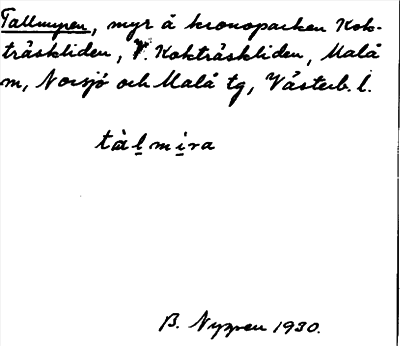 Tallmyren, myr å kronoparken Kok-
träskliden, V. Kokträskliden, Malå
m, Norsjö och Malå tg, Västerb. l.
tàlmira
B. Nyppen 1930.